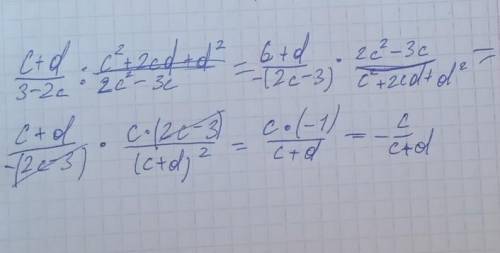 (c+d)/(3-2c) : (c²+2cd+d²)/(2c²-3c) = (6+d)/(-(2c-3)) · (2c²-3c)/(c²+2cd+d²) =
(c+d)/(-(2c-3)) · (c·(2c-3))/((c+d)²) = (c·(-1))/(c+d) = -c/(c+d)